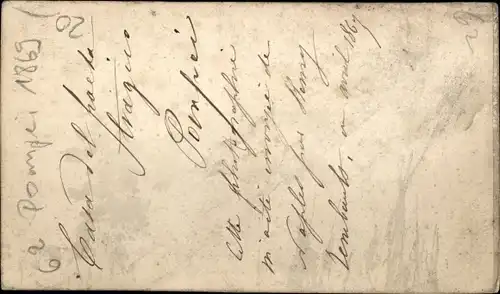 Casa del poeta
tragico
Pompei
Cette photographie
m'a été envoyée de
Naples par Henry
en avril 1867
62 Pompei 1869
20
29